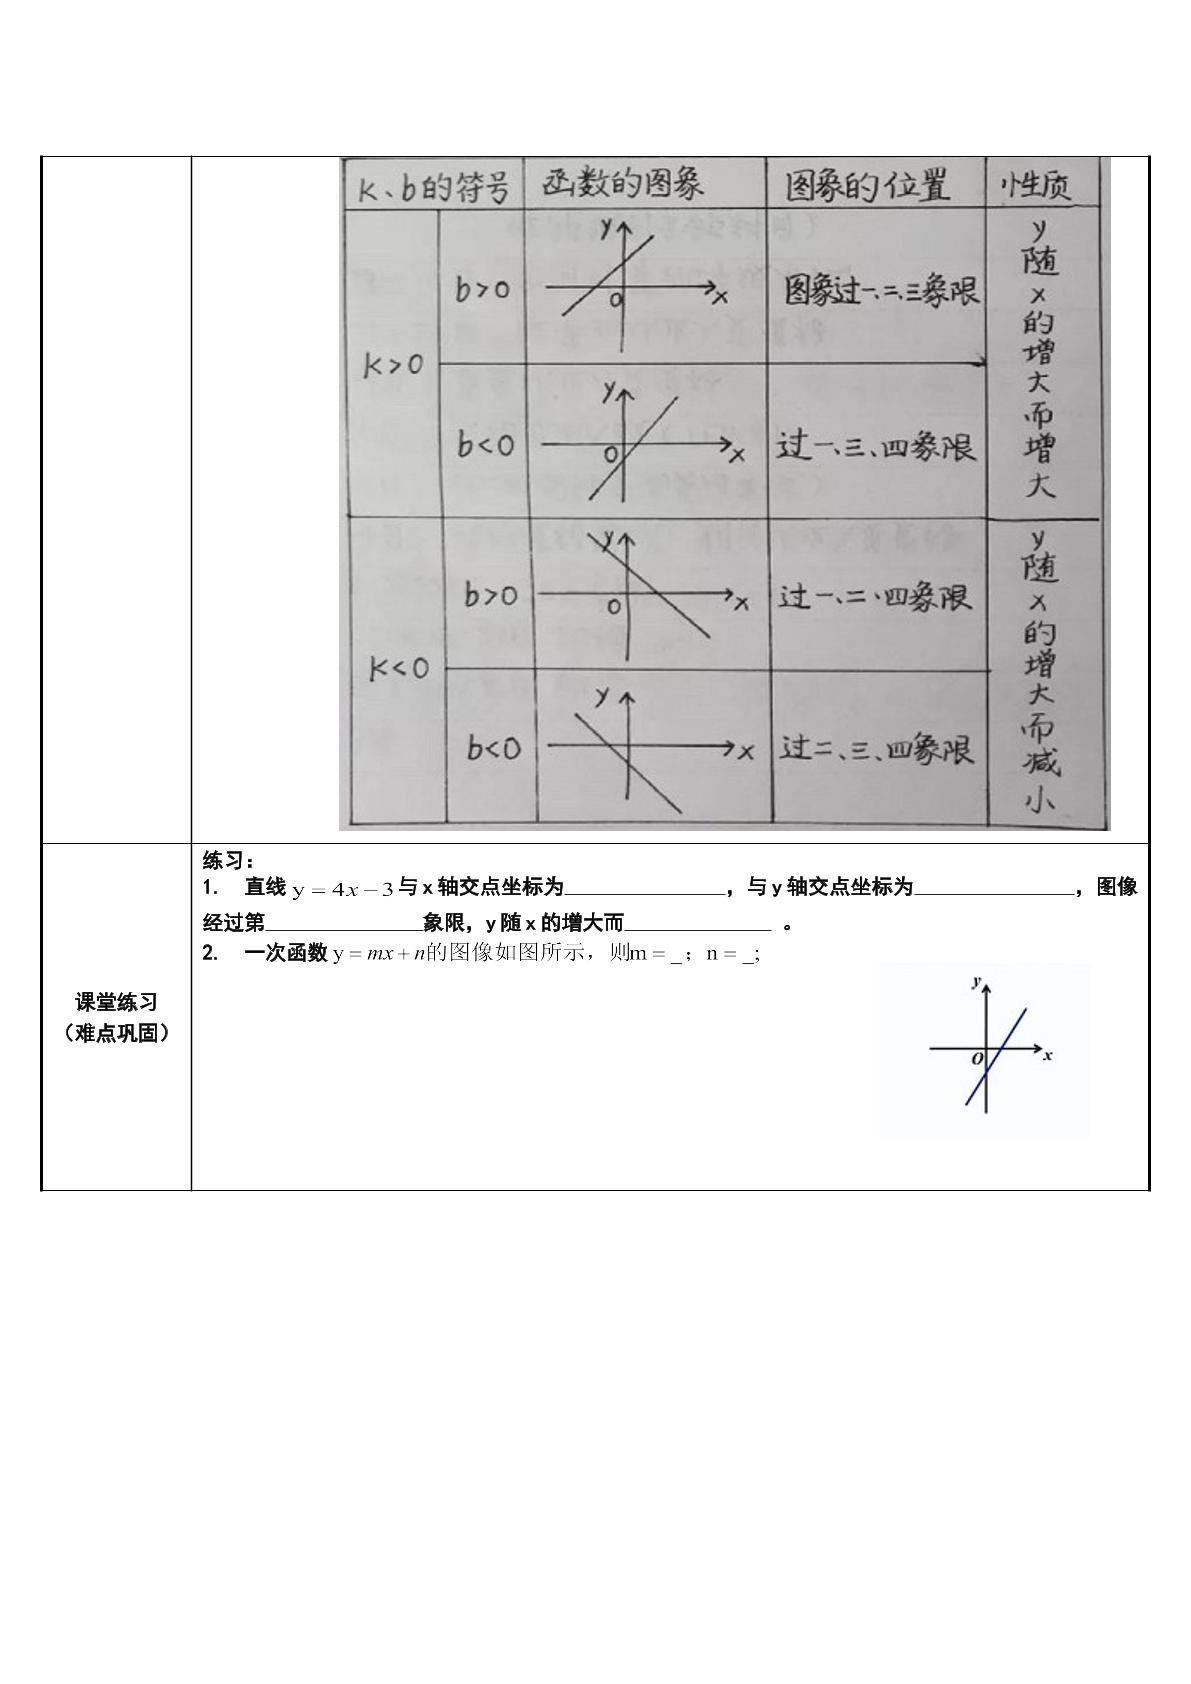 k、b的符号 函数的图象 图象的位置 性质
k>0
b>0
y
O
x
图象过一、二、三象限
y随x的增大而增大
b<0
y
O
x
过一、三、四象限
k<0
b>0
y
O
x
过一、二、四象限
y随x的增大而减小
b<0
y
x
过二、三、四象限
课堂练习
（难点巩固）
练习：
1. 直线 y = 4x − 3 与 x 轴交点坐标为________________，与 y 轴交点坐标为________________，图像
经过第________________象限，y 随 x 的增大而______________ 。
2. 一次函数 y = mx + n的图像如图所示，则m = _；n = _;
y
O
x